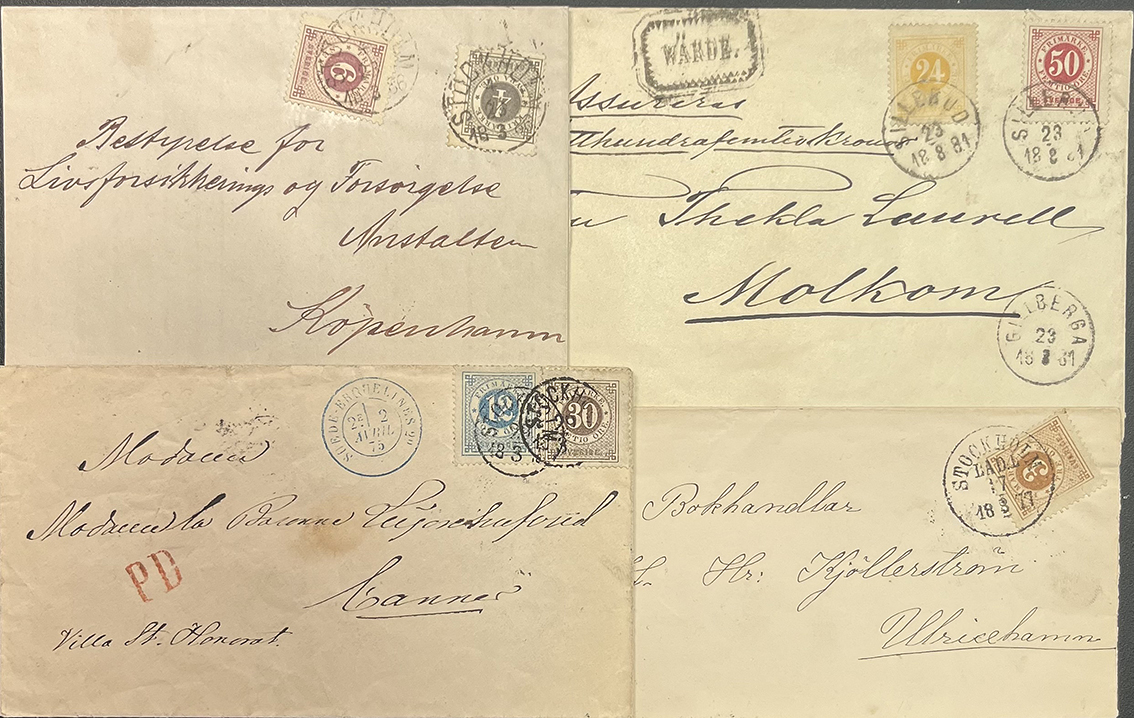 6
STOCKHOLM
4
STOCKHOLM
18 3
Bestyrelse for
Livsforsikkerings og Forsörgelse
Anstalten
Köpenhamn
WÄRDE.
24
FRIMÄRKE
50
FEMTIO ÖRE
SILLERUD
23
18 8 81
SILLERUD
23
18 8 81
Assureras
Thekla Laurell
Molkom
GILLBERGA
23
18 8 81
SUEDE-ERQUELINES
2
AVRIL
75
FRIMÄRKE
12
30
TRETTIO ÖRE
SVERIGE
STOCKH
26
18 3
Madame
Madame la Baronne
Cannes
PD
Villa St. Honorat.
STOCKHOLM
17
18 3 77
3
Bokhandlar
Hr: Kjöllerström
Ulricehamn